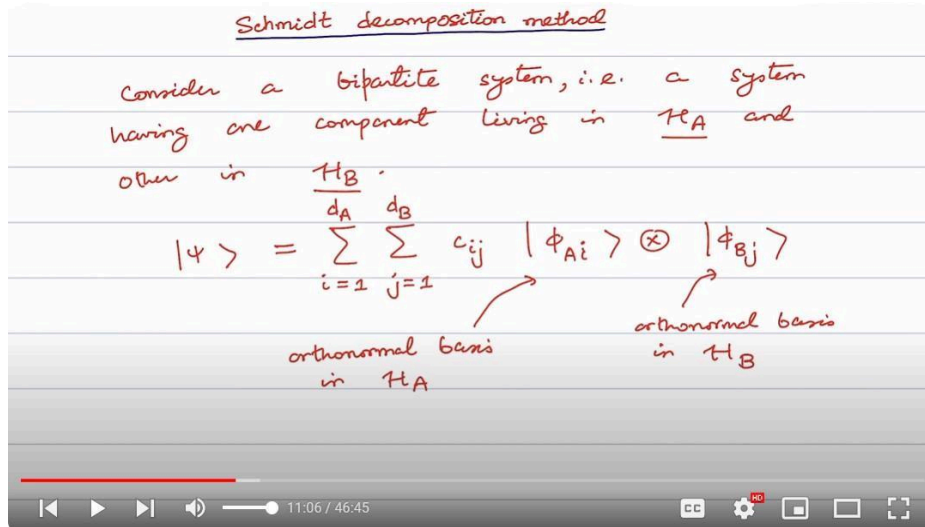 Schmidt decomposition method
Consider a bipartite system, i.e. a system
having one component living in H_A and
other in H_B.
|ψ⟩ = ∑_{i=1}^{d_A} ∑_{j=1}^{d_B} c_{ij} |ϕ_{Ai}⟩ ⊗ |ϕ_{Bj}⟩
orthonormal basis
in H_A
orthonormal basis
in H_B
11:06 / 46:45
CC
HD